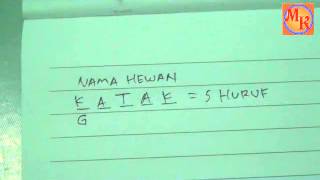 MK
NAMA HEWAN
K A T A K = 5 HURUF
G